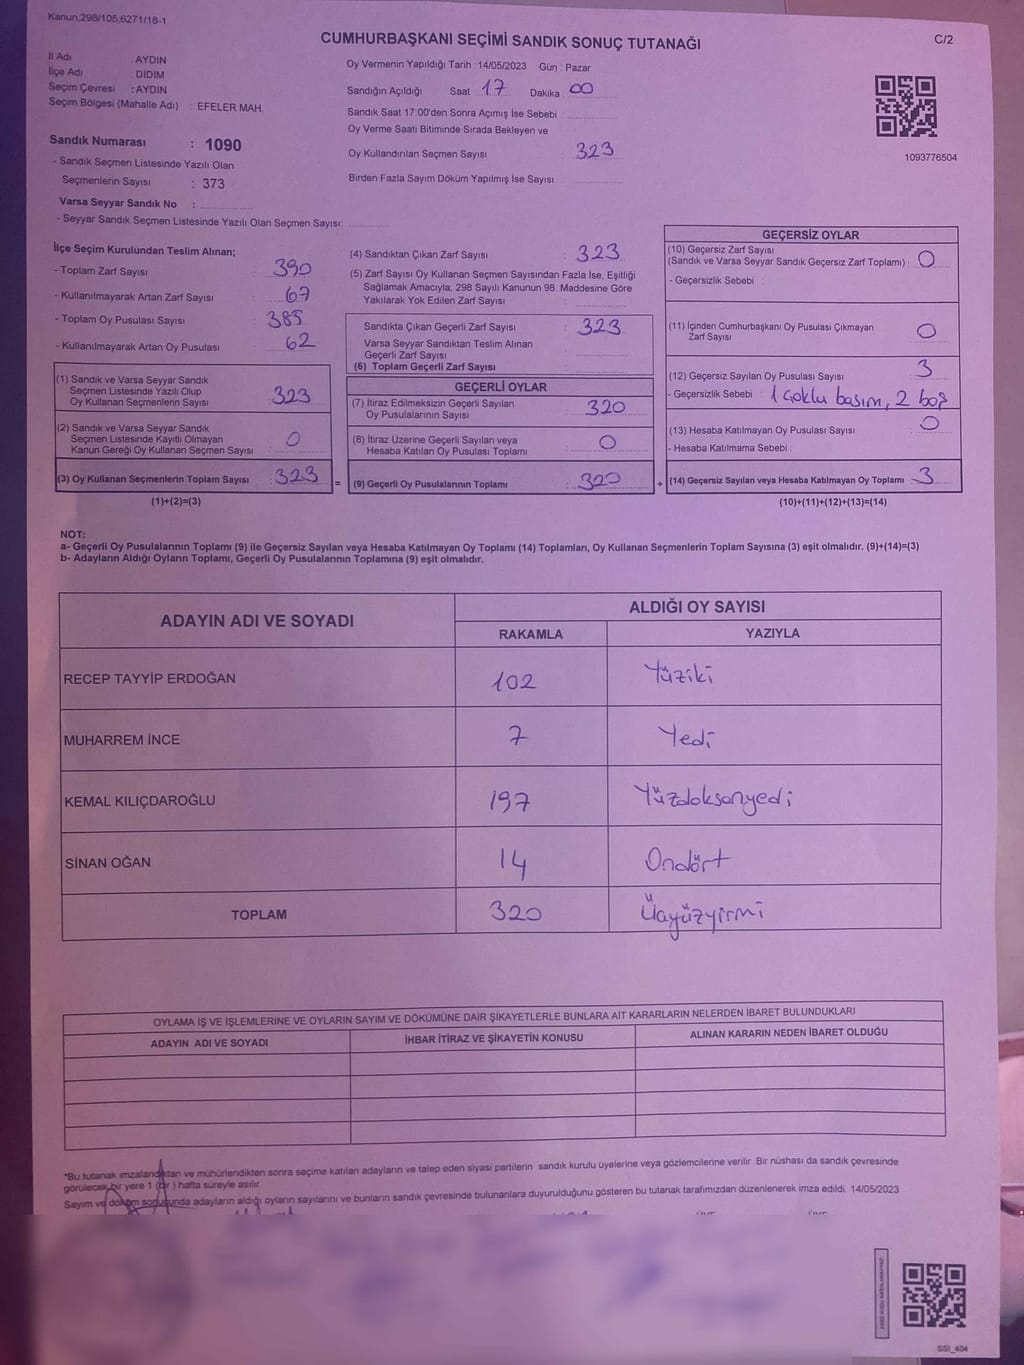 Kanun;298/105,6271/18-1
CUMHURBAŞKANI SEÇİMİ SANDIK SONUÇ TUTANAĞI
C/2
İl Adı : AYDIN
İlçe Adı : DİDİM
Seçim Çevresi : AYDIN
Seçim Bölgesi (Mahalle Adı) : EFELER MAH.
Oy Vermenin Yapıldığı Tarih : 14/05/2023 Gün : Pazar
Sandığın Açıldığı Saat 17 Dakika 00
Sandık Saat 17:00'den Sonra Açımış İse Sebebi :
Oy Verme Saati Bitiminde Sırada Bekleyen ve
Oy Kullandırılan Seçmen Sayısı : 323
Birden Fazla Sayım Döküm Yapılmış İse Sayısı :
1093776504
Sandık Numarası : 1090
- Sandık Seçmen Listesinde Yazılı Olan
Seçmenlerin Sayısı : 373
Varsa Seyyar Sandık No :
- Seyyar Sandık Seçmen Listesinde Yazılı Olan Seçmen Sayısı:
İlçe Seçim Kurulundan Teslim Alınan;
- Toplam Zarf Sayısı : 390
- Kullanılmayarak Artan Zarf Sayısı : 67
- Toplam Oy Pusulası Sayısı : 385
- Kullanılmayarak Artan Oy Pusulası : 62
(1) Sandık ve Varsa Seyyar Sandık
Seçmen Listesinde Yazılı Olup
Oy Kullanan Seçmenlerin Sayısı : 323
(2) Sandık ve Varsa Seyyar Sandık
Seçmen Listesinde Kayıtlı Olmayan
Kanun Gereği Oy Kullanan Seçmen Sayısı : 0
(3) Oy Kullanan Seçmenlerin Toplam Sayısı : 323
(1)+(2)=(3)
(4) Sandıktan Çıkan Zarf Sayısı : 323
(5) Zarf Sayısı Oy Kullanan Seçmen Sayısından Fazla İse, Eşitliği
Sağlamak Amacıyla, 298 Sayılı Kanunun 98. Maddesine Göre
Yakılarak Yok Edilen Zarf Sayısı :
Sandıkta Çıkan Geçerli Zarf Sayısı : 323
Varsa Seyyar Sandıktan Teslim Alınan
Geçerli Zarf Sayısı :
(6) Toplam Geçerli Zarf Sayısı :
GEÇERLİ OYLAR
(7) İtiraz Edilmeksizin Geçerli Sayılan
Oy Pusulalarının Sayısı : 320
(8) İtiraz Üzerine Geçerli Sayılan veya
Hesaba Katılan Oy Pusulası Toplamı : 0
= (9) Geçerli Oy Pusulalarının Toplamı : 320
GEÇERSİZ OYLAR
(10) Geçersiz Zarf Sayısı
(Sandık ve Varsa Seyyar Sandık Geçersiz Zarf Toplamı) : 0
- Geçersizlik Sebebi :
(11) İçinden Cumhurbaşkanı Oy Pusulası Çıkmayan
Zarf Sayısı : 0
(12) Geçersiz Sayılan Oy Pusulası Sayısı : 3
- Geçersizlik Sebebi : 1 çoklu basım, 2 boş
(13) Hesaba Katılmayan Oy Pusulası Sayısı : 0
- Hesaba Katılmama Sebebi :
+ (14) Geçersiz Sayılan veya Hesaba Katılmayan Oy Toplamı : 3
(10)+(11)+(12)+(13)=(14)
NOT:
a- Geçerli Oy Pusulalarının Toplamı (9) ile Geçersiz Sayılan veya Hesaba Katılmayan Oy Toplamı (14) Toplamları, Oy Kullanan Seçmenlerin Toplam Sayısına (3) eşit olmalıdır. (9)+(14)=(3)
b- Adayların Aldığı Oyların Toplamı, Geçerli Oy Pusulalarının Toplamına (9) eşit olmalıdır.
ADAYIN ADI VE SOYADI
ALDIĞI OY SAYISI
RAKAMLA YAZIYLA
RECEP TAYYİP ERDOĞAN 102 Yüziki
MUHARREM İNCE 7 Yedi
KEMAL KILIÇDAROĞLU 197 Yüzdoksanyedi
SİNAN OĞAN 14 Ondört
TOPLAM 320 Üçyüzyirmi
OYLAMA İŞ VE İŞLEMLERİNE VE OYLARIN SAYIM VE DÖKÜMÜNE DAİR ŞİKAYETLERLE BUNLARA AİT KARARLARIN NELERDEN İBARET BULUNDUKLARI
ADAYIN ADI VE SOYADI İHBAR İTİRAZ VE ŞİKAYETİN KONUSU ALINAN KARARIN NEDEN İBARET OLDUĞU
*Bu tutanak imzalandıktan ve mühürlendikten sonra seçime katılan adayların ve talep eden siyasi partilerin sandık kurulu üyelerine veya gözlemcilerine verilir. Bir nüshası da sandık çevresinde
görülecek bir yere 1 (bir ) hafta süreyle asılır.
Sayım ve döküm sonucunda adayların aldığı oyların sayılarını ve bunların sandık çevresinde bulunanlara duyurulduğunu gösteren bu tutanak tarafımızdan düzenlenerek imza edildi. 14/05/2023
SSI_404